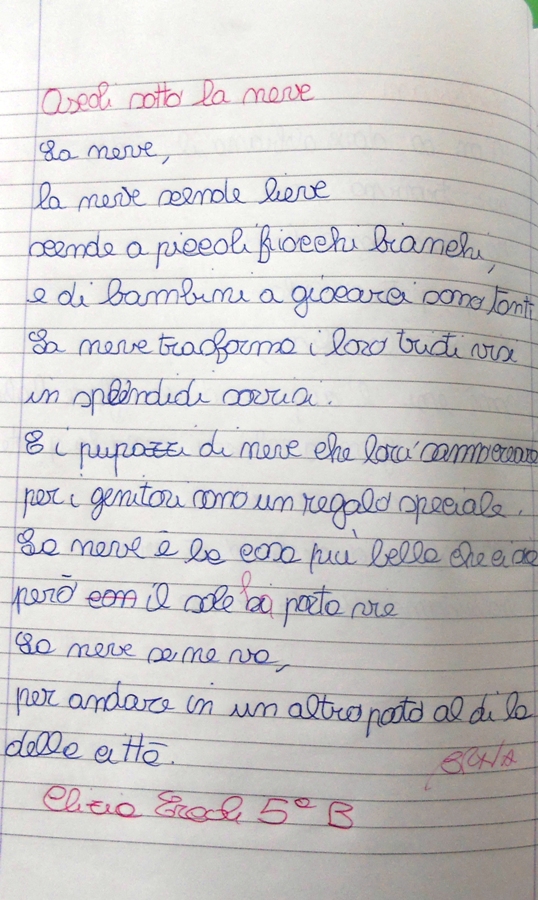 Ascoli sotto la neve
La neve,
la neve scende lieve
scende a piccoli fiocchi bianchi,
e di bambini a giocarci sono tanti
La neve trasforma i loro tristi visi
in splèndidi sorrisi.
E i pupazzi di neve che loro
per i genitori sono un regalo speciale.
La neve è la cosa più bella che ci sia
però con il sole la porta via
La neve se ne va,
per andare in un altro posto al di la
della città.
5° B